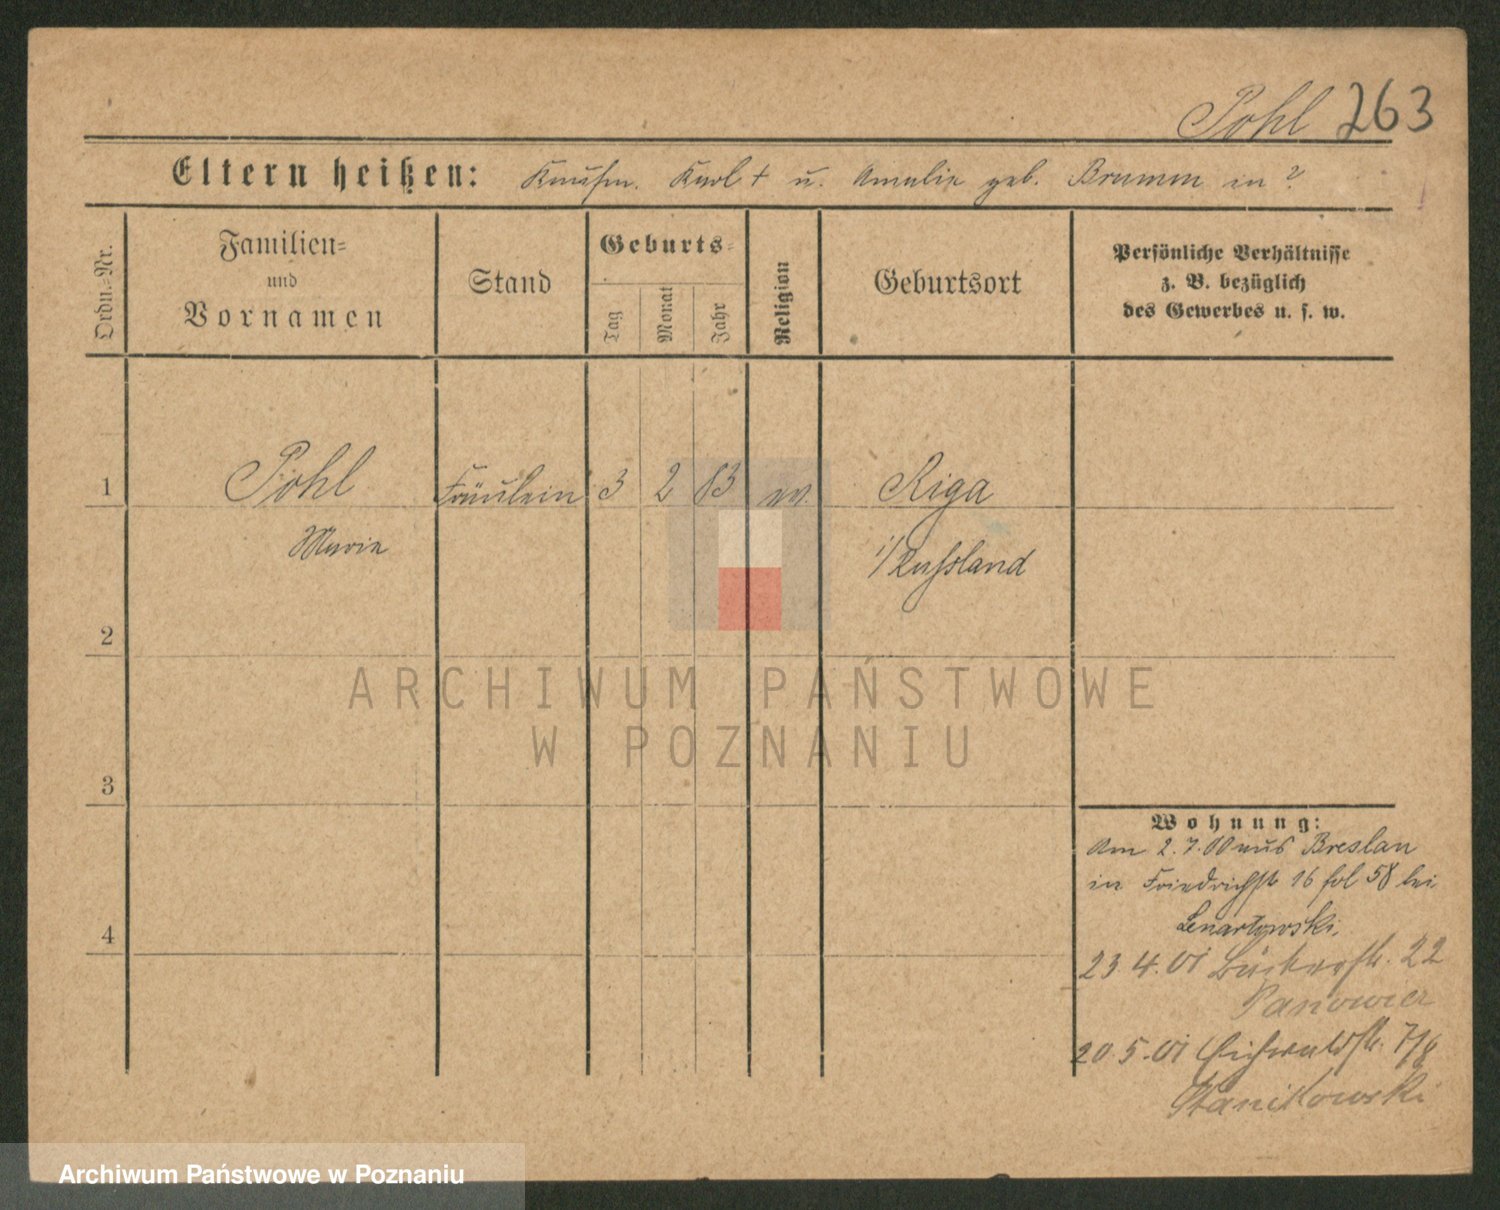 Pohl 263
Eltern heißen: Kaufm. Karl † u. Amalie geb. Brumm in ?
Ordn.-Nr.
Familien-
und
Vornamen
Stand
Geburts-
Tag
Monat
Jahr
Religion
Geburtsort
Persönliche Verhältnisse
z. B. bezüglich
des Gewerbes u. s. w.
1 Pohl Fräulein 3 2 83 ev. Riga
Marie
i/Russland
2
ARCHIWUM PAŃSTWOWE
W POZNANIU
3
Wohnung:
Am 2.7.00 aus Breslau
in Friedrichstr 16 fol 58 bei
Lenartowski.
4
23.4.01 Bäckerstr. 22
Panowicz
20.5.01 Eichwaldstr. 7/8
Stanikowski
Archiwum Państwowe w Poznaniu